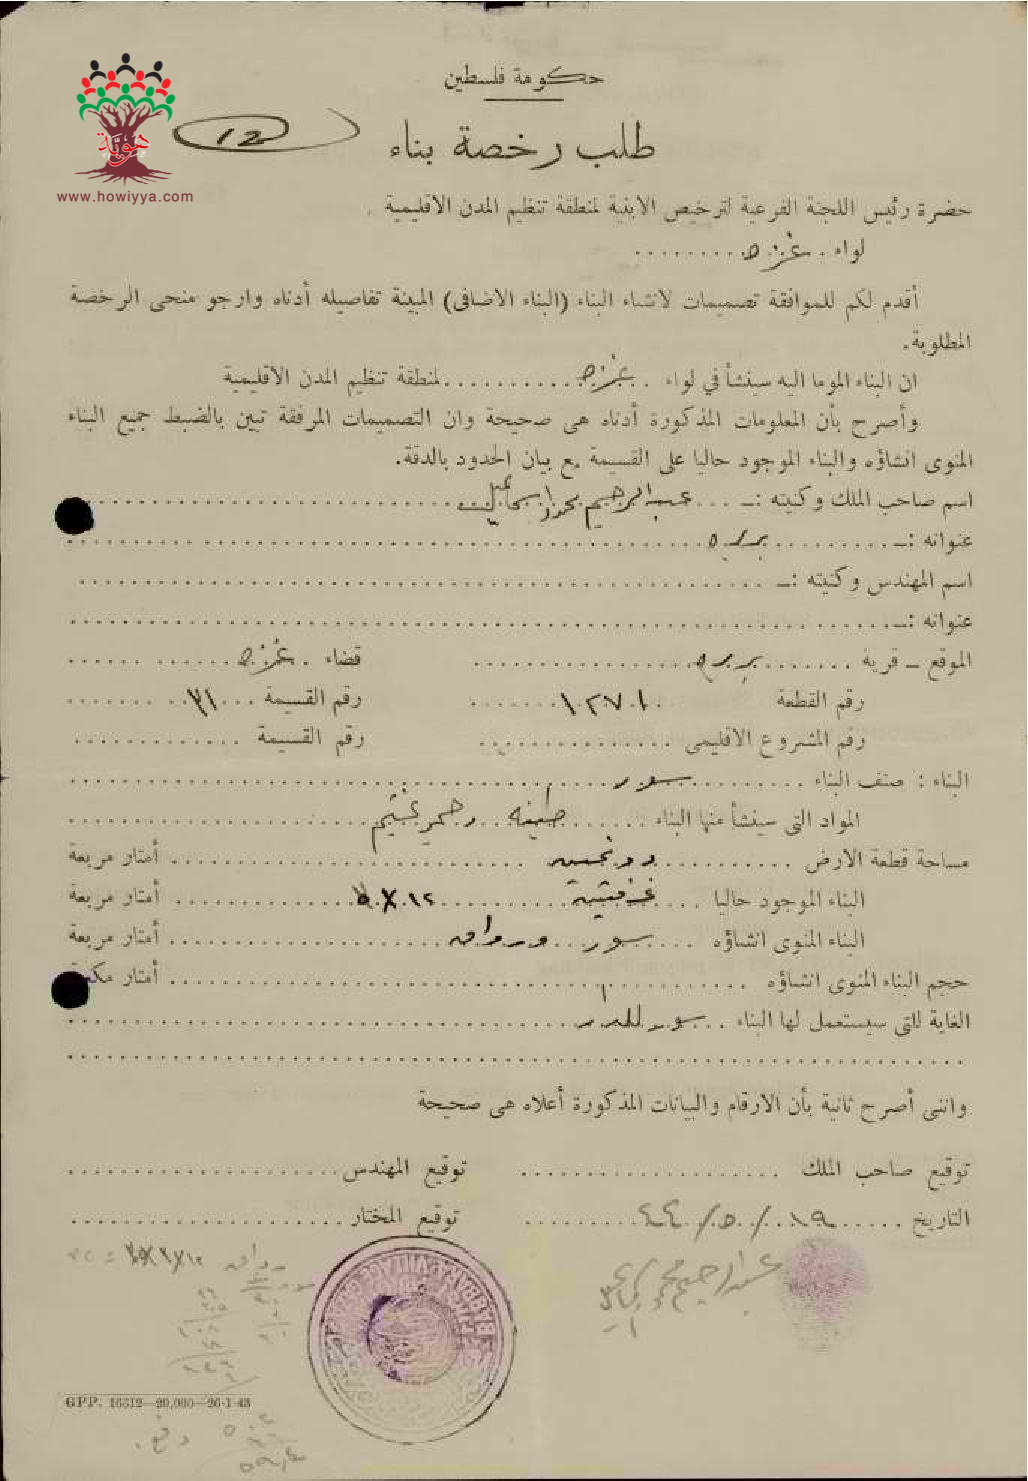 هَوِيَّة
www.howiyya.com
حكومة فلسطين
12
طلب رخصة بناء
حضرة رئيس اللجنة الفرعية لترخيص الابنية لمنطقة تنظيم المدن الاقليمية .
لواء . غزه
أقدم لكم للموافقة تصميمات لانشاء البناء (البناء الاضافى) المبينة تفاصيله أدناه وارجو منحى الرخصة
المطلوبة.
ان البناء الموما اليه سينشأ في لواء . غزه لمنطقة تنظيم المدن الاقليمية
وأصرح بأن المعلومات المذكورة أدناه هى صحيحة وان التصميمات المرفقة تبين بالضبط جميع البناء
المنوى انشاؤه والبناء الموجود حاليا على القسيمة مع بيان الحدود بالدقة.
اسم صاحب الملك وكنيته :ـ عبد الرحيم محمد اسماعيل
عنوانه :ـ بربره
اسم المهندس وكنيته :ـ
عنوانه :ـ
الموقع ـ قرية بربره قضاء . غزه
رقم القطعة رقم القسيمة ٣١
رقم المشروع الاقليمى رقم القسيمة
البناء : صنف البناء سور
المواد التى سينشأ منها البناء : طينه
مساحة قطعة الارض أمتار مربعة
البناء الموجود حاليا ١٢ أمتار مربعة
البناء المنوى انشاؤه سور ورواق أمتار مربعة
حجم البناء المنوى انشاؤه أمتار مكعبة
الغاية للتى سيستعمل لها البناء سور للدار
وانى أصرح ثانية بأن الارقام والبيانات المذكورة أعلاه هى صحيحة
توقيع صاحب الملك توقيع المهندس
التاريخ ١٩/٥/٤٤ توقيع المختار
عبد الرحيم محمد اسماعيل
GPP. 16312—20,000—26-1-43